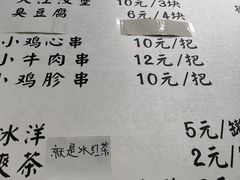 10元/3块
臭豆腐 6元/4块
小鸡心串 10元/把
小牛肉串 12元/把
小鸡胗串 10元/把
冰洋 5元/
就是冰红茶
茶 2元/